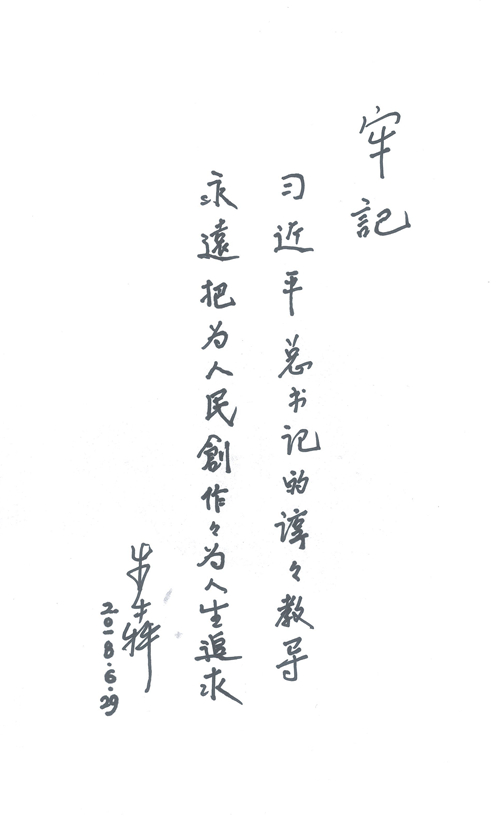 牢記
习近平总书记的谆々教导
永遠把为人民創作々为人生追求
2018.6.29